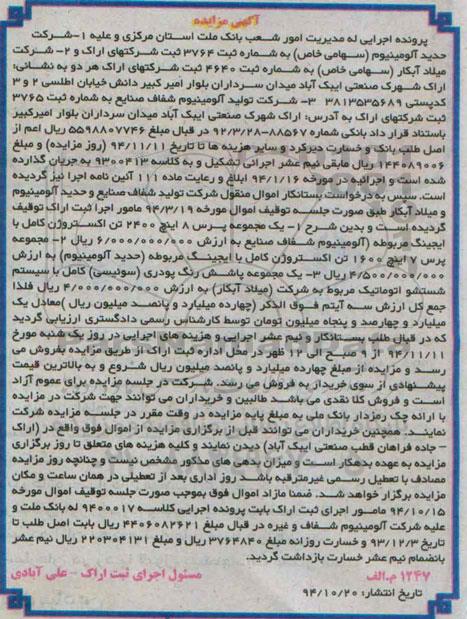 آگهی مزایده
پرونده اجرایی له مدیریت امور شعب بانک ملت استان مرکزی و علیه ۱-شرکت
حدید آلومینیوم (سهامی خاص) به شماره ثبت ۳۷۶۴ ثبت شرکتهای اراک و ۲- شرکت
میلاد آبکار (سهامی خاص) به شماره ثبت ۴۶۴۰ ثبت شرکتهای اراک هر دو به نشانی:
اراک شهرک صنعتی ایبک آباد میدان سرداران بلوار امیر کبیر دانش خیابان اطلسی ۲ و ۳
کدپستی ۳۸۱۳۵۳۵۶۸۹ ۳- شرکت تولید آلومینیوم شفاف صنایع به شماره ثبت ۳۷۶۵
ثبت شرکتهای اراک به آدرس: اراک شهرک صنعتی ایبک آباد میدان سرداران بلوار امیرکبیر
باستناد قرار داد بانکی شماره ۸۸۵۶۷-۹۲/۳/۲۸ در قبال مبلغ ۵۵۹۸۸۰۷۷۴۶ ریال اعم از
اصل طلب بانک و خسارت دیرکرد و سایر هزینه ها تا تاریخ ۹۴/۱۱/۱۱ (روز مزایده) و مبلغ
۱۴۴۰۸۹۰۰۶ ریال مابقی نیم عشر اجرائی تشکیل و به کلاسه ۹۳۰۰۴۱۳ به جریان گذارده
شده است و اجرائیه در مورخه ۹۴/۱/۱۶ ابلاغ و رعایت ماده ۱۱۱ آئین نامه اجرا نیز گردیده
است. سپس به درخواست بستانکار اموال منقول شرکت تولید شفاف صنایع و حدید آلومینیوم
و میلاد آبکار طبق صورت جلسه توقیف اموال مورخه ۹۴/۳/۱۹ مامور اجرا ثبت اراک توقیف
گردیده است و بدین شرح ۱- یک مجموعه پرس ۸ اینچ ۲۴۰۰ تن اکستروژن کامل با
ایجینگ مربوطه (آلومینیوم شفاف صنایع به ارزش ۶/۰۰۰/۰۰۰/۰۰۰ ریال ۲- مجموعه
پرس ۷ اینچ ۱۶۰۰ تن اکستروژن کامل با ایجینگ مربوطه (حدید آلومینیوم) به ارزش
۴/۵۰۰/۰۰۰/۰۰۰ ریال ۳- یک مجموعه پاشش رنگ پودری (سوئیسی) کامل با سیستم
شستشو اتوماتیک مربوط به شرکت (میلاد آبکار) به ارزش ۴/۰۰۰/۰۰۰/۰۰۰ ریال فلذا
جمع کل ارزش سه آیتم فوق الذکر (چهارده میلیارد و پانصد میلیون ریال )معادل یک
میلیارد و چهارصد و پنجاه میلیون تومان توسط کارشناس رسمی دادگستری ارزیابی گردید
که در قبال طلب بستانکار و نیم عشر اجرایی و هزینه های اجرایی در روز یک شنبه مورخ
۹۴/۱۱/۱۱ از ۹ صبح الی ۱۲ ظهر در محل اداره ثبت اراک از طریق مزایده بفروش می
رسد و مزایده از مبلغ چهارده میلیارد و پانصد میلیون ریال شروع و به بالاترین قیمت
پیشنهادی از سوی خریدار به فروش می رسد. شرکت در جلسه مزایده برای عموم آزاد
است و فروش کلا نقدی می باشد طالبین و خریداران می توانند جهت شرکت در مزایده
با ارائه چک رمزدار بانک ملی به مبلغ پایه مزایده در وقت مقرر در جلسه مزایده شرکت
نمایند. همچنین خریداران می توانند قبل از برگزاری مزایده از اموال فوق واقع در (اراک
- جاده فراهان قطب صنعتی ایبک آباد) دیدن نمایند و کلیه هزینه های متعلق تا روز برگزاری
مزایده به عهده بدهکار است و میزان بدهی های مذکور مشخص نیست و چنانچه روز مزایده
مصادف با تعطیل رسمی غیرمترقبه باشد روز اداری بعد از تعطیلی در همان ساعت و مکان
مزایده برگزار خواهد شد. ضمنا مازاد اموال فوق بموجب صورت جلسه توقیف اموال مورخه
۹۴/۱۰/۱۵ مامور اجرای ثبت اراک بابت پرونده اجرایی کلاسه ۹۴۰۰۰۱۷ له بانک ملت و
علیه شرکت آلومینیوم شفاف و غیره در قبال مبلغ ۴۴۰۶۰۸۲۶۲۱ ریال بابت اصل طلب تا
تاریخ ۹۳/۱۲/۳ و خسارت روزانه مبلغ ۳۷۶۴۸۴۰ ریال و مبلغ ۲۲۰۳۰۴۱۳۱ ریال نیم عشر
بانضمام نیم عشر خسارت بازداشت گردید.
۱۲۴۷ م.الف مسئول اجرای ثبت اراک - علی آبادی
تاریخ انتشار: ۹۴/۱۰/۲۰